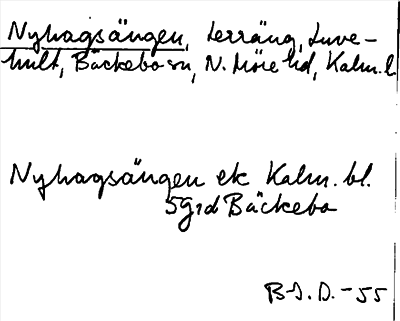 Nyhagsängen, terräng, Luve-
hult, Bäckebo sn, N. Möre hd, Kalm. l
Nyhagsängen ek Kalm. bl.
5g1d Bäckebo
B-I. D. -55